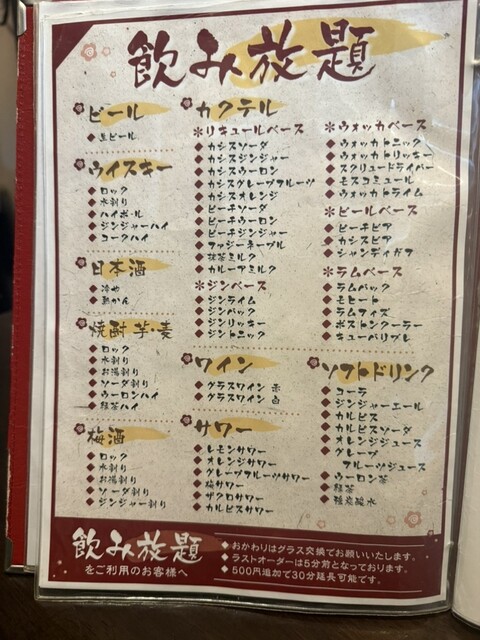 飲み放題
ビール
生ビール
ウイスキー
ロック
水割り
ハイボール
ジンジャーハイ
コークハイ
日本酒
冷や
熱かん
焼酎 芋・麦
ロック
水割り
お湯割り
ソーダ割り
ウーロンハイ
緑茶ハイ
梅酒
ロック
水割り
お湯割り
ソーダ割り
ジンジャー割り
カクテル
*リキュールベース
カシスソーダ
カシスジンジャー
カシスウーロン
カシスグレープフルーツ
カシスオレンジ
ピーチソーダ
ピーチウーロン
ピーチジンジャー
ファジーネーブル
抹茶ミルク
カルーアミルク
*ジンベース
ジンライム
ジンバック
ジンリッキー
ジントニック
*ウォッカベース
ウォッカトニック
ウォッカリッキー
スクリュードライバー
モスコミュール
ウォッカライム
*ビールベース
ピーチビア
カシスビア
シャンディガフ
*ラムベース
ラムバック
モヒート
ラムフィズ
ボストンクーラー
キューバリブレ
ワイン
グラスワイン 赤
グラスワイン 白
サワー
レモンサワー
オレンジサワー
グレープフルーツサワー
梅サワー
ザクロサワー
カルピスサワー
ソフトドリンク
コーラ
ジンジャーエール
カルピス
カルピスソーダ
オレンジジュース
グレープ
フルーツジュース
ウーロン茶
緑茶
強炭酸水
飲み放題
をご利用のお客様へ
おかわりはグラス交換でお願いいたします。
ラストオーダーは5分前となっております。
500円追加で30分延長可能です。